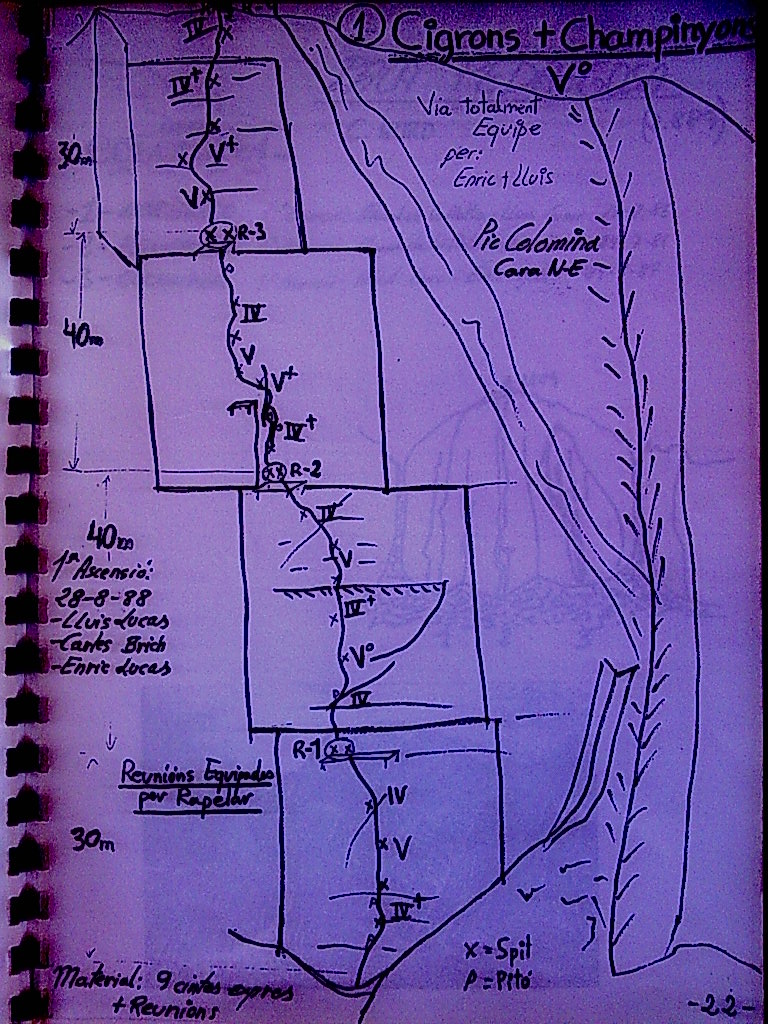 ① Cigrons + Champinyons
V°
Via totalment
Equipe
per:
Enric + Lluis
Pic Colomina
Cara N-E
IV
IV+
V+
V
30m
R-3
IV
V
V+
IV+
40m
R-2
IV
V
IV+
V°
IV
40m
1ª Ascensió:
28-8-88
-Lluis Lucas
-Carles Brich
-Enric Lucas
R-1
Reunións Equipades
per Rapelar
IV
V
IV+
30m
x = Spit
Material: 9 cintes expres
+ Reunions
-22-